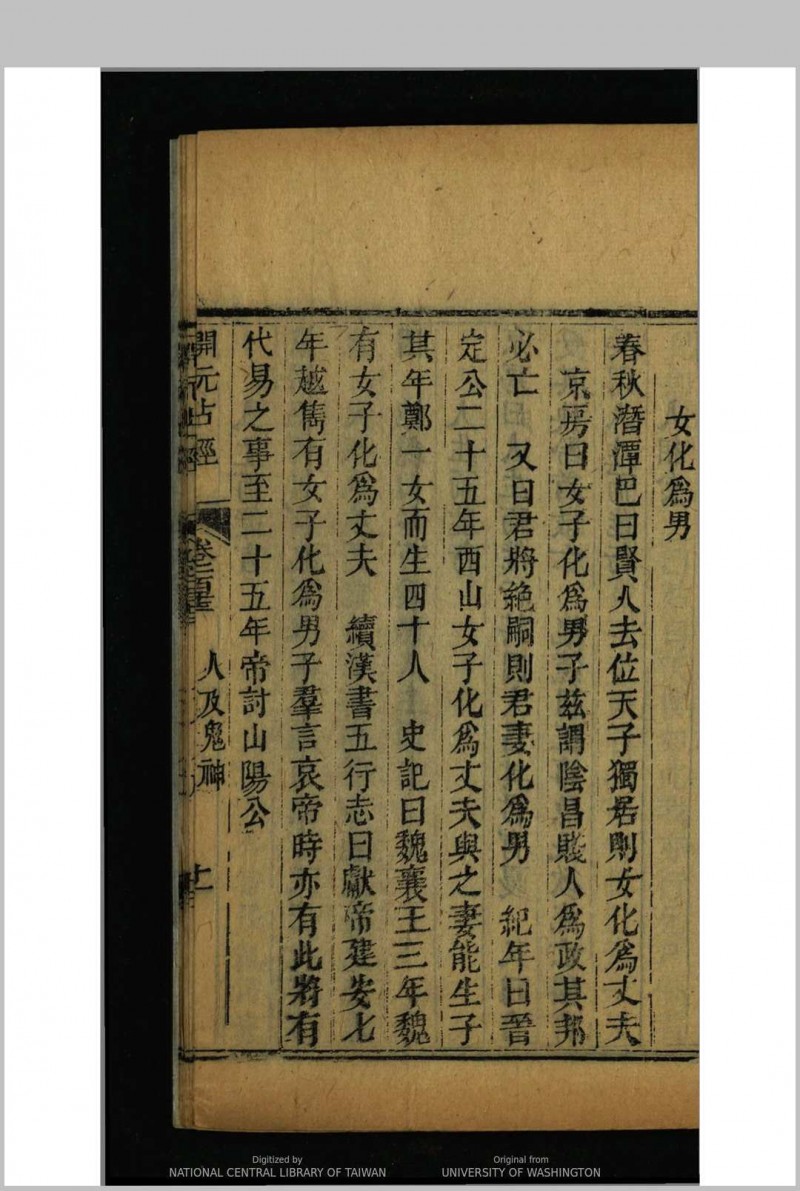 女化爲男
春秋潛潭巴曰賢人去位天子獨居則女化爲丈夫
京房曰女子化爲男子兹謂陰昌賤人爲政其邦
必亡　又曰君將絶嗣則君妻化爲男　紀年曰晉
定公二十五年西山女子化爲丈夫與之妻能生子
其年鄭一女而生四十人　史記曰魏襄王三年魏
有女子化爲丈夫　續漢書五行志曰獻帝建安七
年越雋有女子化爲男子羣言哀帝時亦有此將有
代易之事至二十五年帝討山陽公
開元占經　人及鬼神　十
Digitized by
NATIONAL CENTRAL LIBRARY OF TAIWAN
Original from
UNIVERSITY OF WASHINGTON